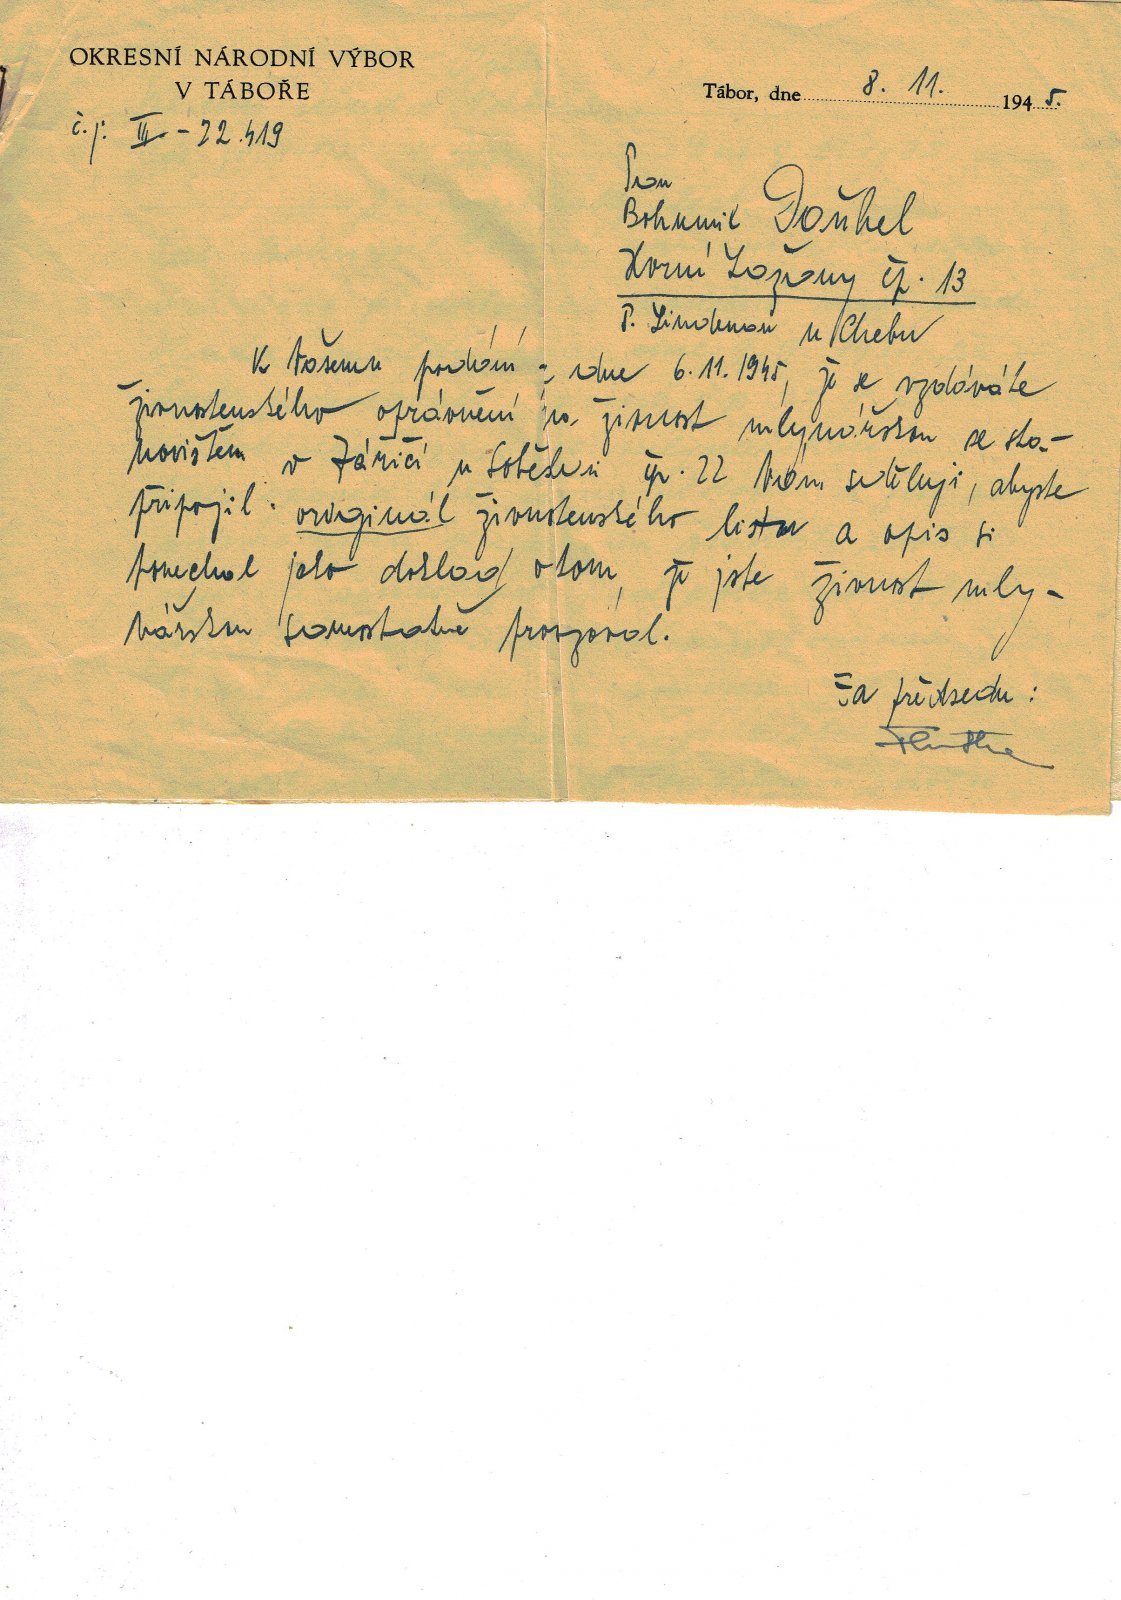 OKRESNÍ NÁRODNÍ VÝBOR
V TÁBOŘE
Tábor, dne 8. 11. 1945.
č.j. III - 22.419
Pan
Bohumil Douhel
Horní Ložany čp. 13
P. Lindenau u Chebu
K Vašemu podání z dne 6.11.1945, že se vzdáváte
živnostenského oprávnění na živnost mlynářskou se sta-
novištěm v Záříčí u Soběslavi čp. 22 Vám sděluji, abyste
připojil originál živnostenského listu a opis si
ponechal jako doklad o tom, že jste živnost mly-
nářskou samostatně provozoval.
Za předsedu: